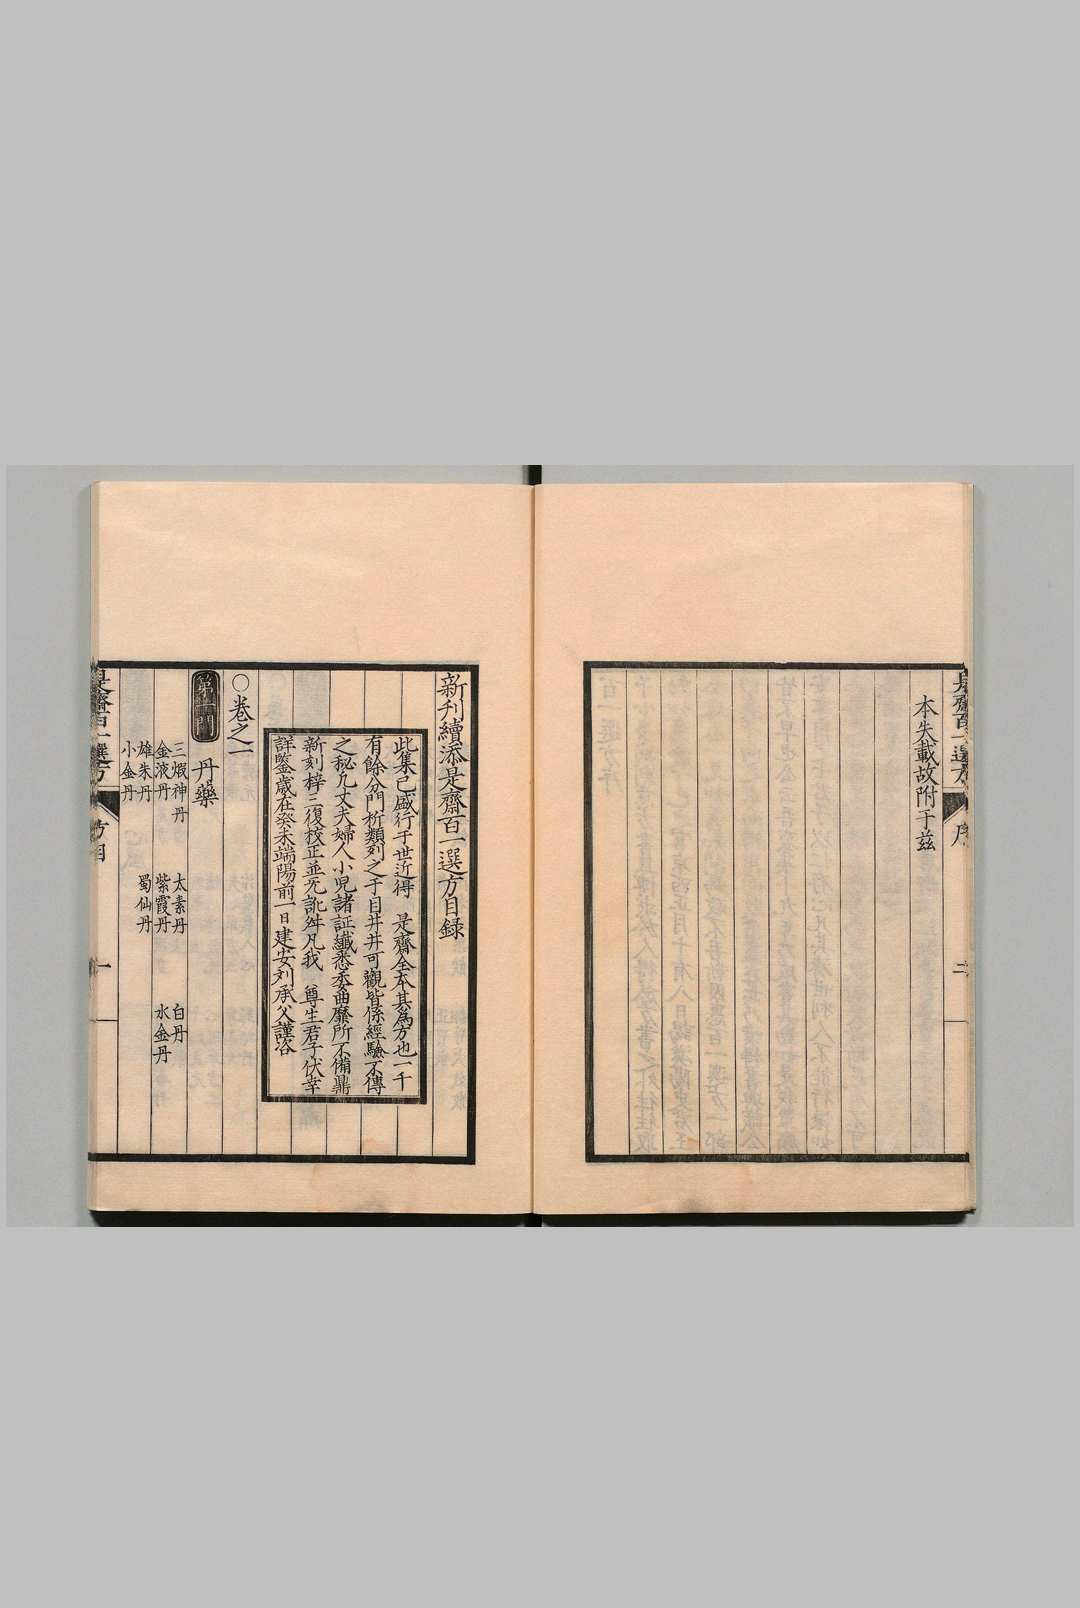 本失載故附于兹
是齋百一選方
序
二
新刊續添是齋百一選方目録
此集已盛行于世近得 是齋全本其爲方也一千
有餘分門析類列之于目井井可觀皆係經驗不傳
之秘凡丈夫婦人小児諸証纖悉委曲靡所不備鼎
新刻梓三復校正並无訛舛凡我 尊生君子伏幸
詳鑒歳在癸未端陽前一日建安刘承父謹咨
○卷之一
第一門 丹藥
三煅神丹 太素丹 白丹
金液丹 紫霞丹 水金丹
雄朱丹 蜀仙丹
小金丹
是齋百一選方
方目
一